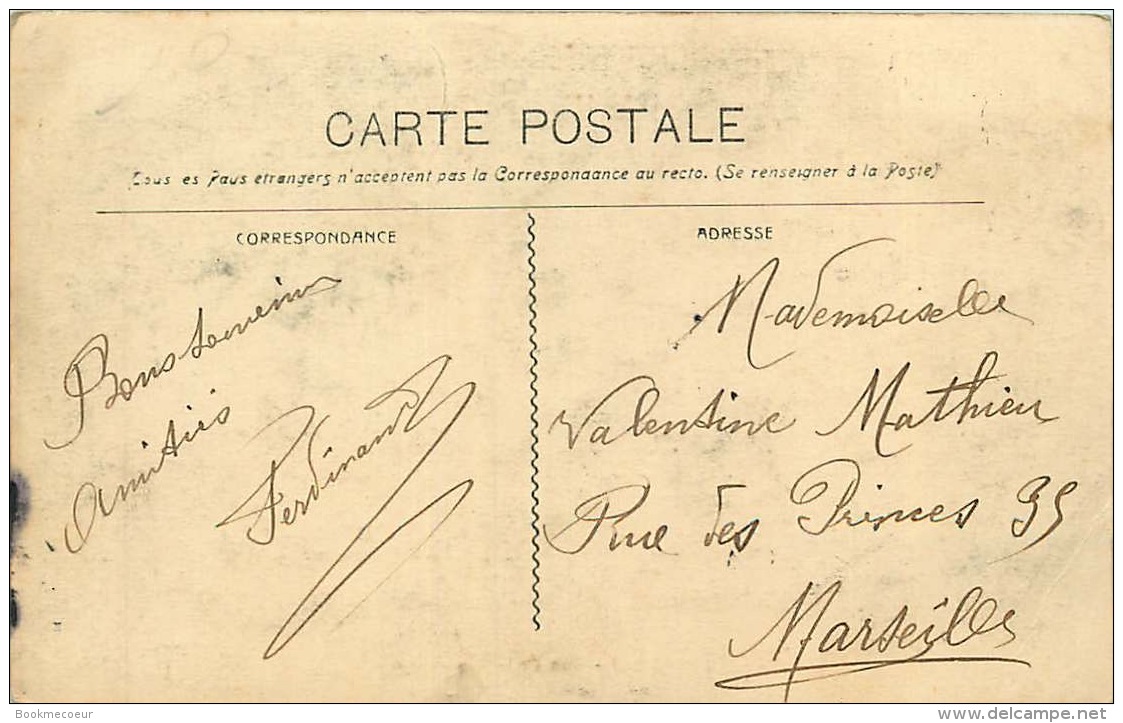 CARTE POSTALE
Tous les Pays étrangers n'acceptent pas la Correspondance au recto. (Se renseigner à la Poste)
CORRESPONDANCE
ADRESSE
Bons Souvenirs
Amitiés
Ferdinand
Mademoiselle
Valentine Mathieu
Rue des Princes 35
Marseille
Bookmecoeur
delcampe.net